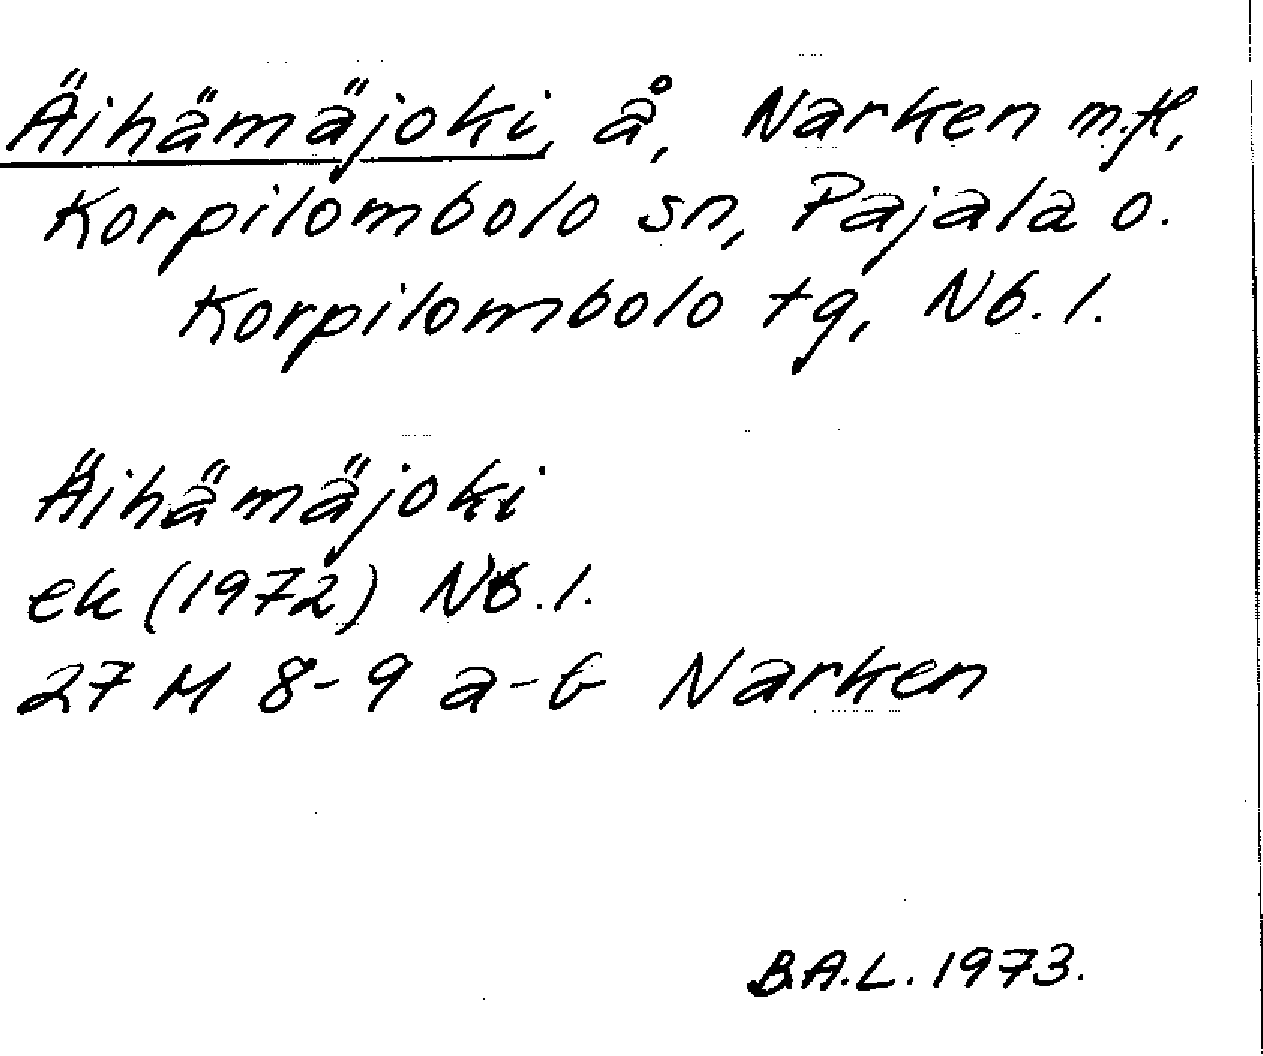 Äihämäjoki, å, Narken m.fl,
Korpilombolo sn, Pajala o.
Korpilombolo tg, Nb. l.
Äihämäjoki
ek (1972) Nb. l.
27 M 8-9 a-b Narken
B.A.L. 1973.